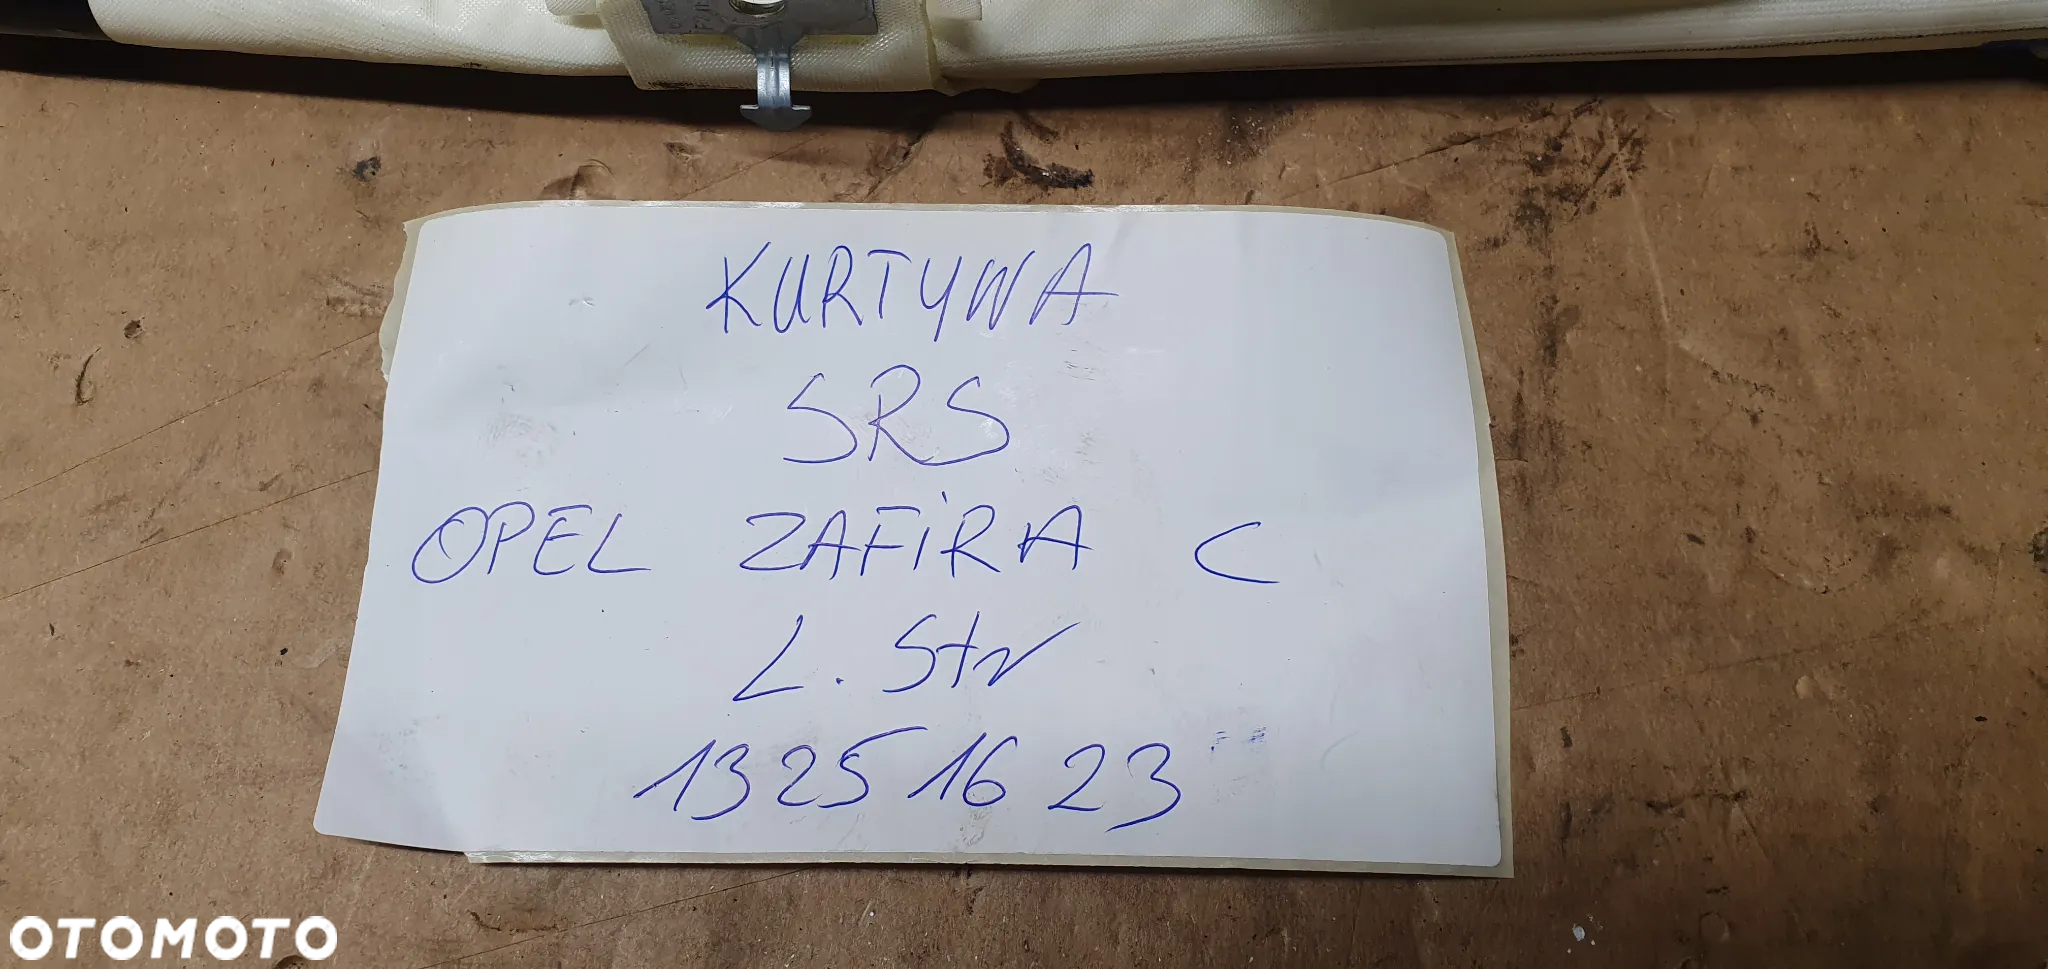 KURTYWA
SRS
OPEL ZAFiRA C
L. Str
13251623
OTOMOTO